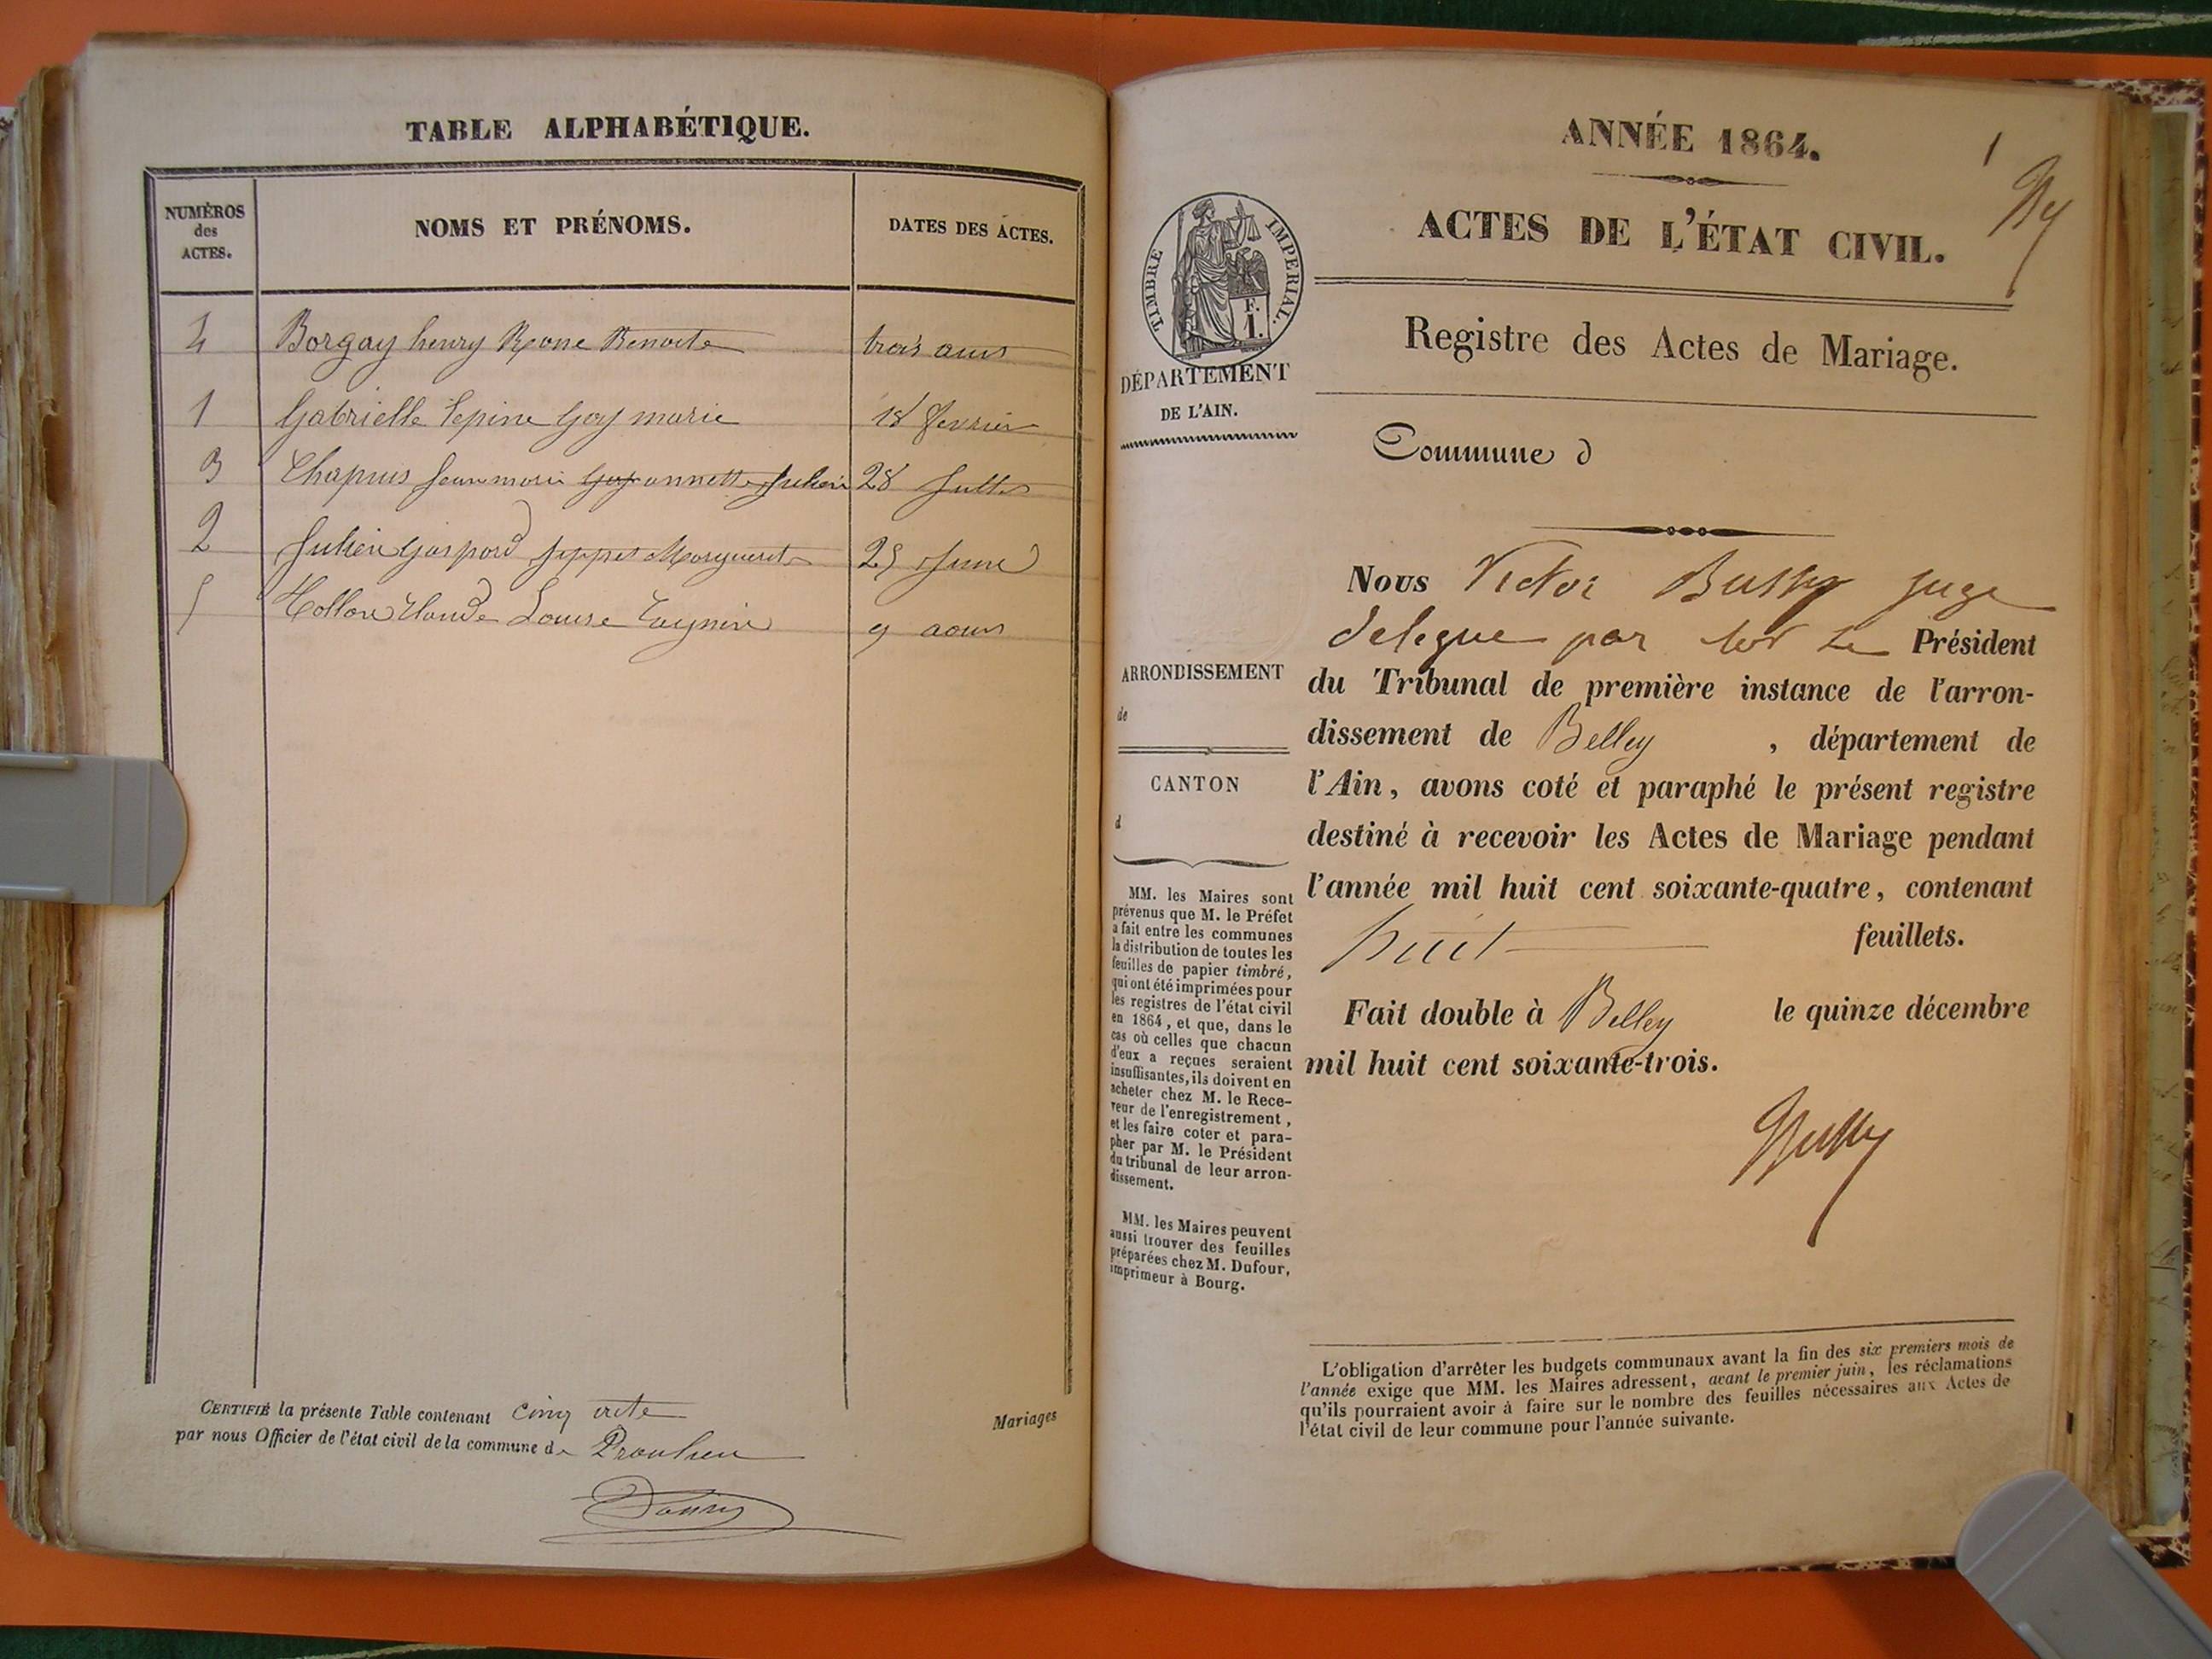 TABLE ALPHABÉTIQUE.
NUMÉROS
des
ACTES.
NOMS ET PRÉNOMS.
DATES DES ACTES.
4 Borgay henry Benoite trois aout
1 Gabrielle Goy marie 18 fevrier
3 Chapuis Jean marie annette Julien 28
2 Julien Gaspard 25
5 Claude Louise 9 aout
CERTIFIÉ la présente Table contenant Cinq acte
par nous Officier de l'état civil de la commune de Proulieu
Mariages
ANNÉE 1864.
1
ACTES DE L'ÉTAT CIVIL.
TIMBRE IMPERIAL.
F.
1.
Registre des Actes de Mariage.
DÉPARTEMENT
DE L'AIN.
Commune d
ARRONDISSEMENT
de
CANTON
d
MM. les Maires sont
prévenus que M. le Préfet
a fait entre les communes
la distribution de toutes les
feuilles de papier timbré,
qui ont été imprimées pour
les registres de l'état civil
en 1864, et que, dans le
cas où celles que chacun
d'eux a reçues seraient
insuffisantes, ils doivent en
acheter chez M. le Rece-
veur de l'enregistrement,
et les faire coter et para-
pher par M. le Président
du tribunal de leur arron-
dissement.
MM. les Maires peuvent
aussi trouver des feuilles
préparées chez M. Dufour,
imprimeur à Bourg.
Nous Victor Bussy juge
delegue par Le Président
du Tribunal de première instance de l'arron-
dissement de Belley, département de
l'Ain, avons coté et paraphé le présent registre
destiné à recevoir les Actes de Mariage pendant
l'année mil huit cent soixante-quatre, contenant
huit feuillets.
Fait double à Belley le quinze décembre
mil huit cent soixante-trois.
Bussy
L'obligation d'arrêter les budgets communaux avant la fin des six premiers mois de
l'année exige que MM. les Maires adressent, avant le premier juin, les réclamations
qu'ils pourraient avoir à faire sur le nombre des feuilles nécessaires aux Actes de
l'état civil de leur commune pour l'année suivante.